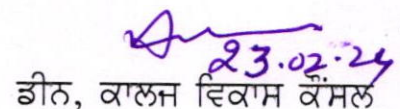 23.02.24
ਡੀਨ, ਕਾਲਜ ਵਿਕਾਸ ਕੌਂਸਲ